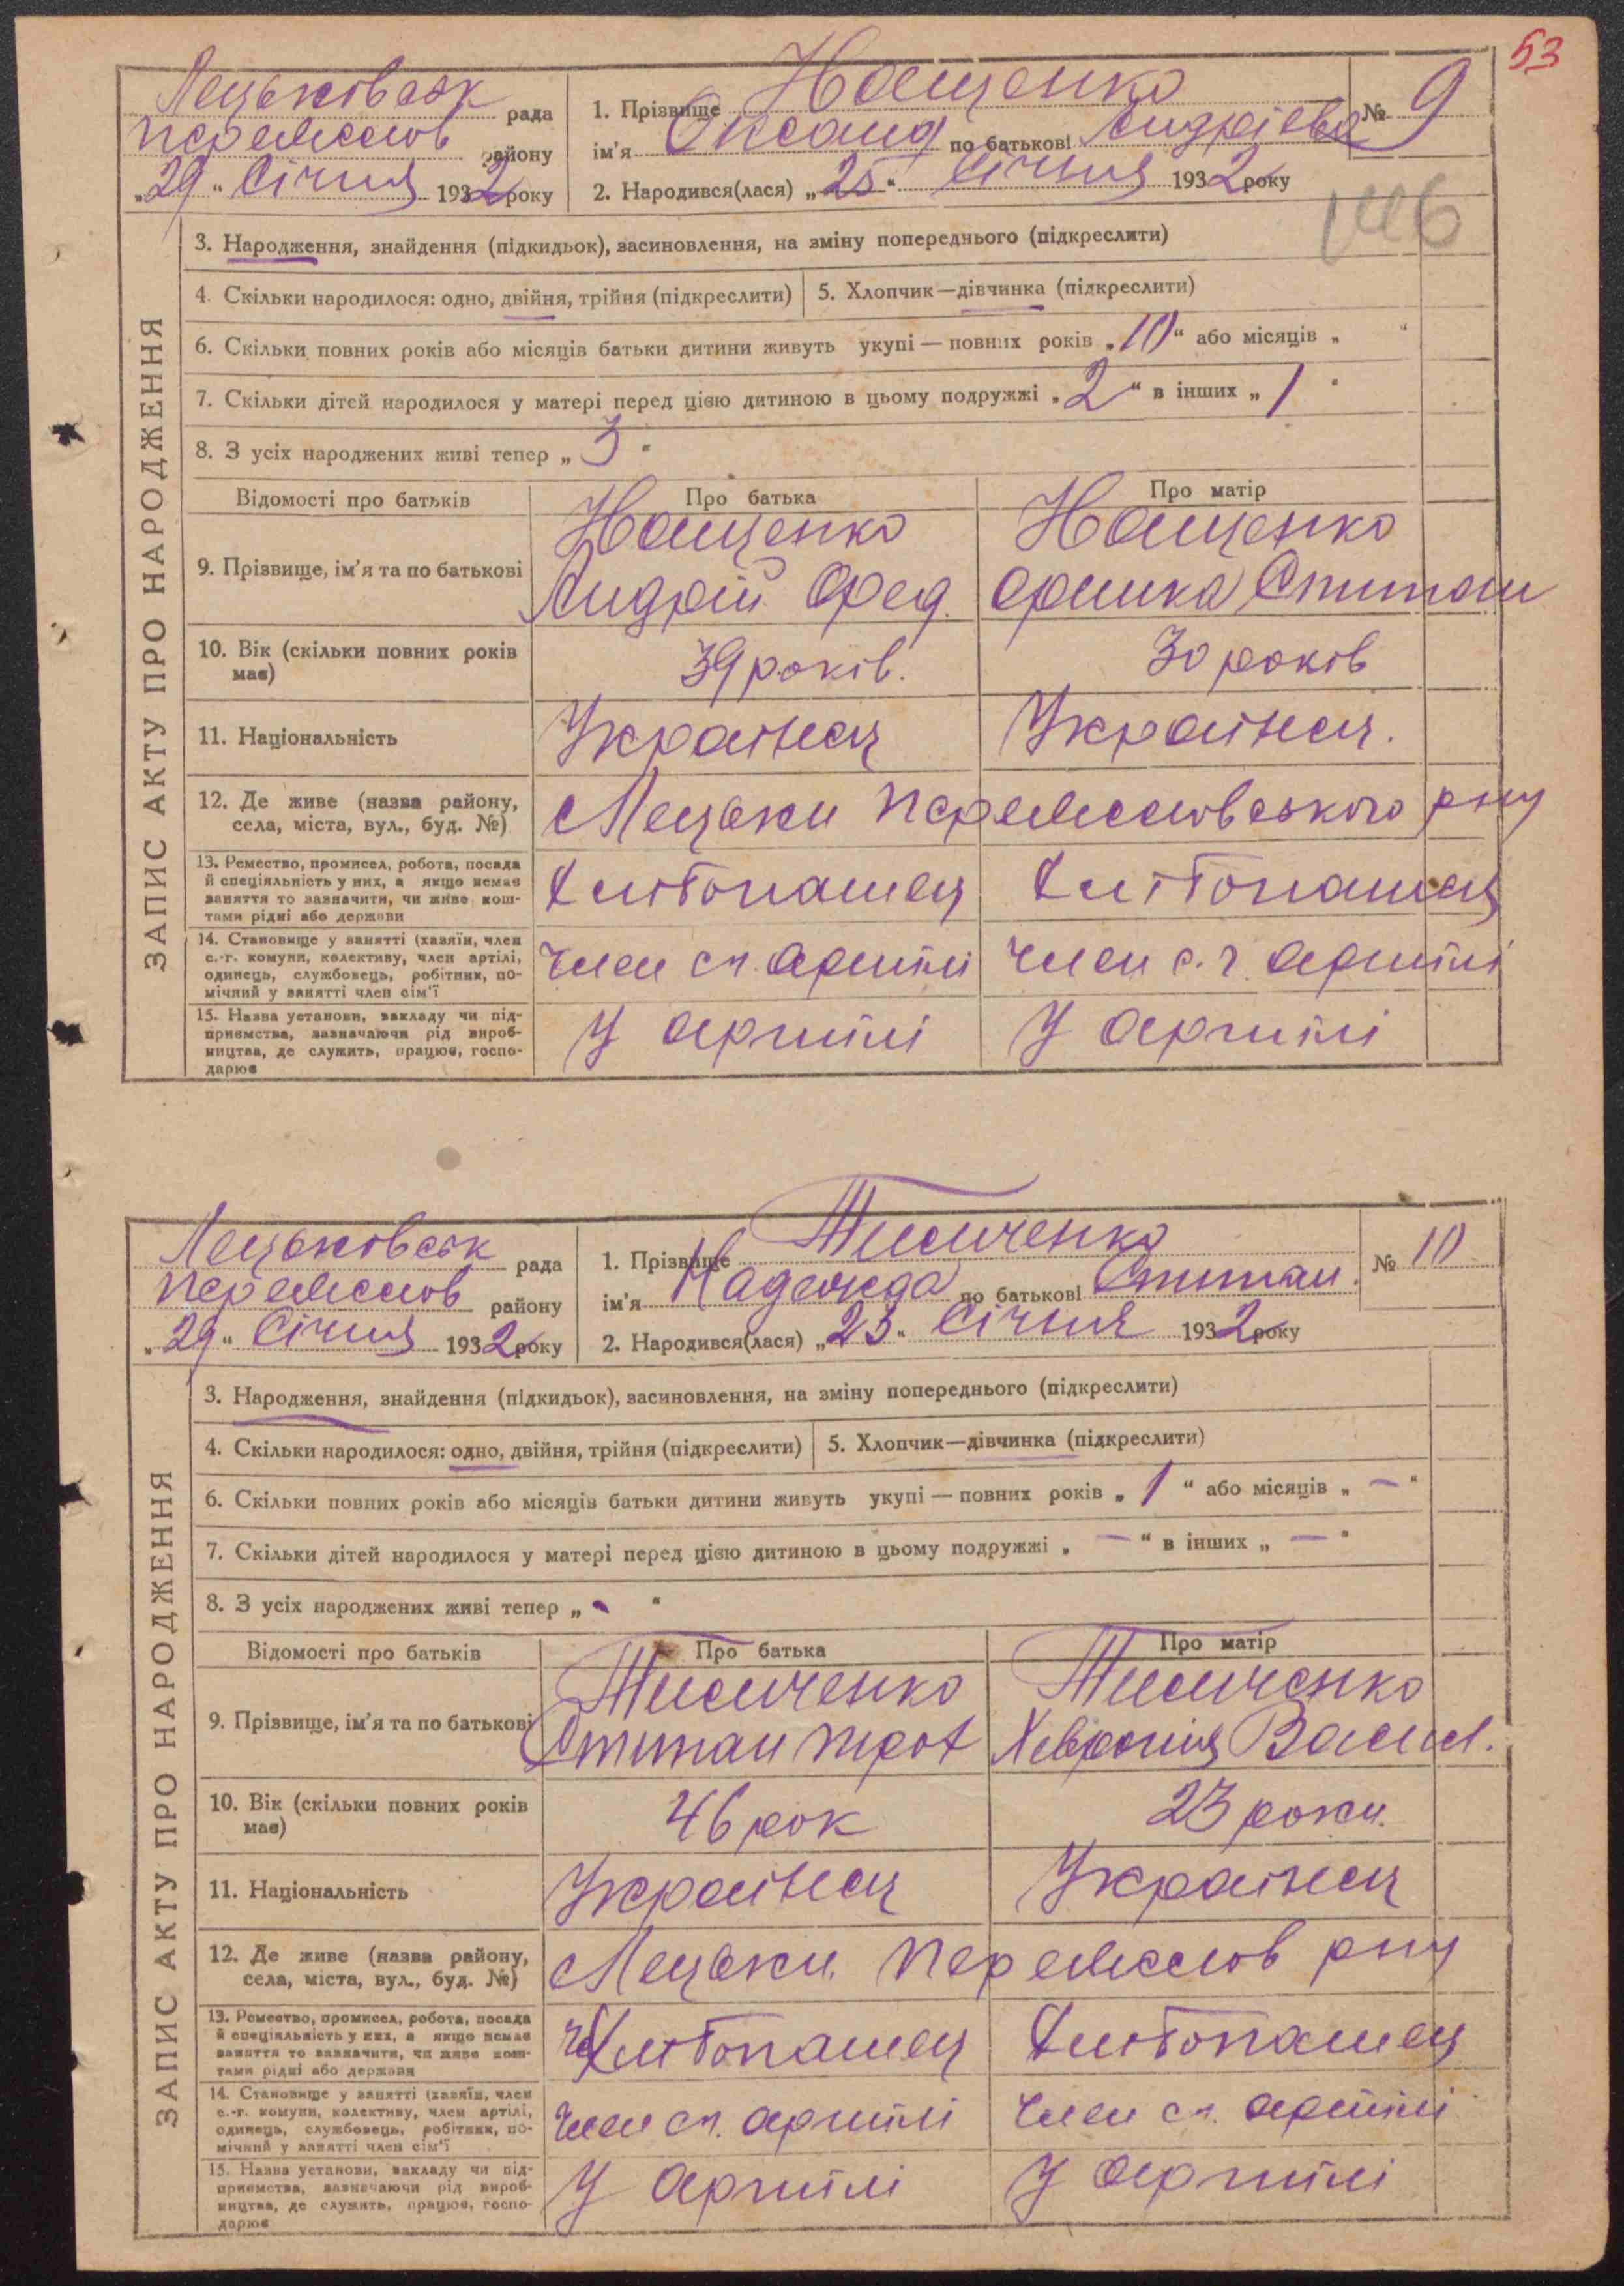 53
Лецьковськ рада
Переяслов району
„29“ Січня 1932 року
1. Прізвище Нощенко
ім'я Оксана по батькові Андрієва
№ 9
2. Народився(лася) „25“ Січня 1932 року
146
ЗАПИС АКТУ ПРО НАРОДЖЕННЯ
3. Народження, знайдення (підкидьок), засиновлення, на зміну попереднього (підкреслити)
4. Скільки народилося: одно, двійня, трійня (підкреслити) 5. Хлопчик—дівчинка (підкреслити)
6. Скільки повних років або місяців батьки дитини живуть укупі — повних років „10“ або місяців „ “
7. Скільки дітей народилося у матері перед цією дитиною в цьому подружжі „2“ в інших „1“
8. З усіх народжених живі тепер „3“
Відомості про батьків Про батька Про матір
9. Прізвище, ім'я та по батькові
Нощенко Нощенко
Андрій Фед. Оришка Степан
10. Вік (скільки повних років має)
39 років. 30 років
11. Національність Українец Українец.
12. Де живе (назва району, села, міста, вул., буд. №)
Лецьки Переясловського р-ну
13. Ремество, промисел, робота, посада
й спеціяльність у них, а якщо немає
заняття то зазначити, чи живе кош-
тами рідні або держави
Хлібопашец Хлібопашец
14. Становище у занятті (хазяїн, член
с.-г. комуни, колективу, член артілі,
одинець, службовець, робітник, по-
мічний у занятті член сім'ї
член с.г. артілі член с.г. артілі
15. Назва установи, закладу чи під-
приємства, зазначаючи рід вироб-
ництва, де служить, працює, госпо-
дарює
У артілі У артілі
Лецьковськ рада
Переяслов району
„29“ Січня 1932 року
1. Прізвище Тисиченко
ім'я Надежда по батькові Степан.
№ 10
2. Народився(лася) „23“ Січня 1932 року
ЗАПИС АКТУ ПРО НАРОДЖЕННЯ
3. Народження, знайдення (підкидьок), засиновлення, на зміну попереднього (підкреслити)
4. Скільки народилося: одно, двійня, трійня (підкреслити) 5. Хлопчик—дівчинка (підкреслити)
6. Скільки повних років або місяців батьки дитини живуть укупі — повних років „1“ або місяців „—“
7. Скільки дітей народилося у матері перед цією дитиною в цьому подружжі „—“ в інших „—“
8. З усіх народжених живі тепер „-“
Відомості про батьків Про батька Про матір
9. Прізвище, ім'я та по батькові
Тисиченко Тисиченко
Степан Троф Хевронія Васил.
10. Вік (скільки повних років має)
46 рок 23 роки.
11. Національність Українец Українец
12. Де живе (назва району, села, міста, вул., буд. №)
Лецьки Переяслов р-ну
13. Ремество, промисел, робота, посада
й спеціяльність у них, а якщо немає
заняття то зазначити, чи живе кош-
тами рідні або держави
Хлібопашец Хлібопашец
14. Становище у занятті (хазяїн, член
с.-г. комуни, колективу, член артілі,
одинець, службовець, робітник, по-
мічний у занятті член сім'ї
член с.г. артілі член с.г. артілі
15. Назва установи, закладу чи під-
приємства, зазначаючи рід вироб-
ництва, де служить, працює, госпо-
дарює
У артілі У артілі